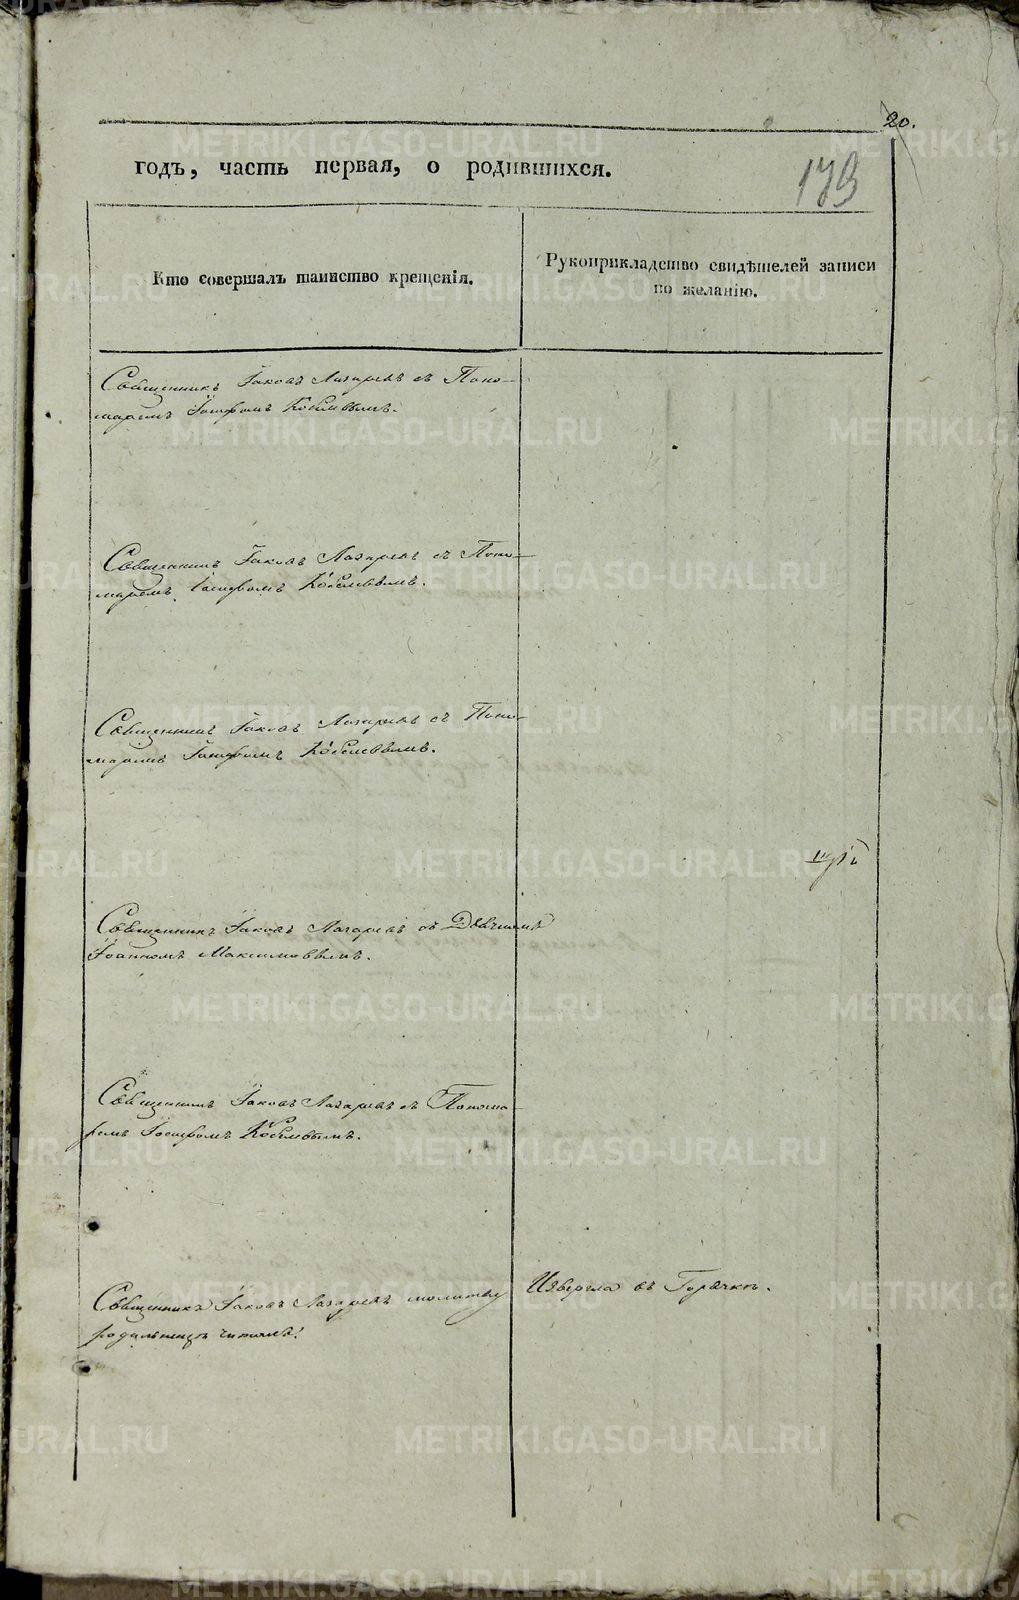 20.
годъ, часть первая, о родившихся.
173
Кто совершалъ таинство крещенія.
Рукоприкладство свидѣтелей записи
по желанію.
Священникъ Іаковъ Лазаревъ съ Поно-
маремъ Іосифомъ Кобелевымъ.
Священникъ Іаковъ Лазаревъ съ Поно-
маремъ Іосифомъ Кобелевымъ.
Священникъ Іаковъ Лазаревъ съ Поно-
маремъ Іосифомъ Кобелевымъ.
Священникъ Іаковъ Лазаревъ съ Дьячкомъ
Іоанномъ Максимовымъ.
Священникъ Іаковъ Лазаревъ съ Понома-
ремъ Іосифомъ Кобелевымъ.
Священникъ Іаковъ Лазаревъ молитву
родильницѣ читалъ.
Извергла въ Горячкѣ.
METRIKI.GASO-URAL.RU